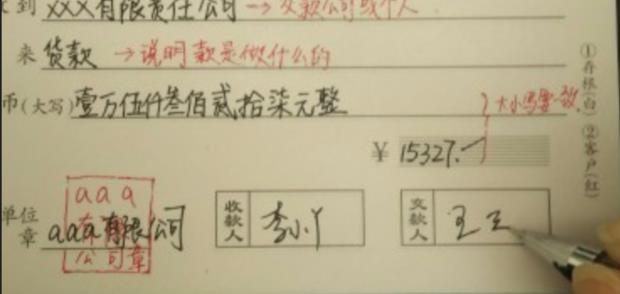 到 XXX有限责任公司 → 交款公司或个人
来 货款 → 说明款是做什么的
币(大写) 壹万伍仟叁佰贰拾柒元整 大小写要一致
¥ 15327.-
单位章 aaa有限公司
aaa
公司章
收款人 李小丫
交款人 王三
①存根(白) ②客户(红)